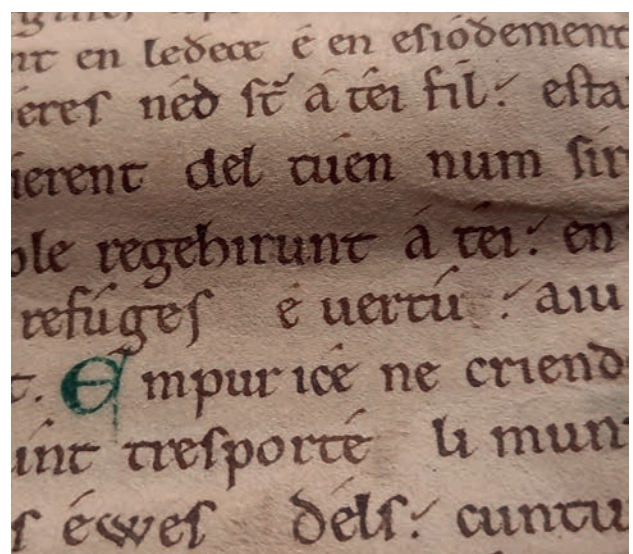 nt en ledece é en esiódement
éres néd st̄ á téi fil: esta
ierent del tuen num sir
ble regehirunt á téi: en
refúges é uertú : aiu
t. Empur icé ne criend
úint tresporté li munt
s éwes déls: cuntu